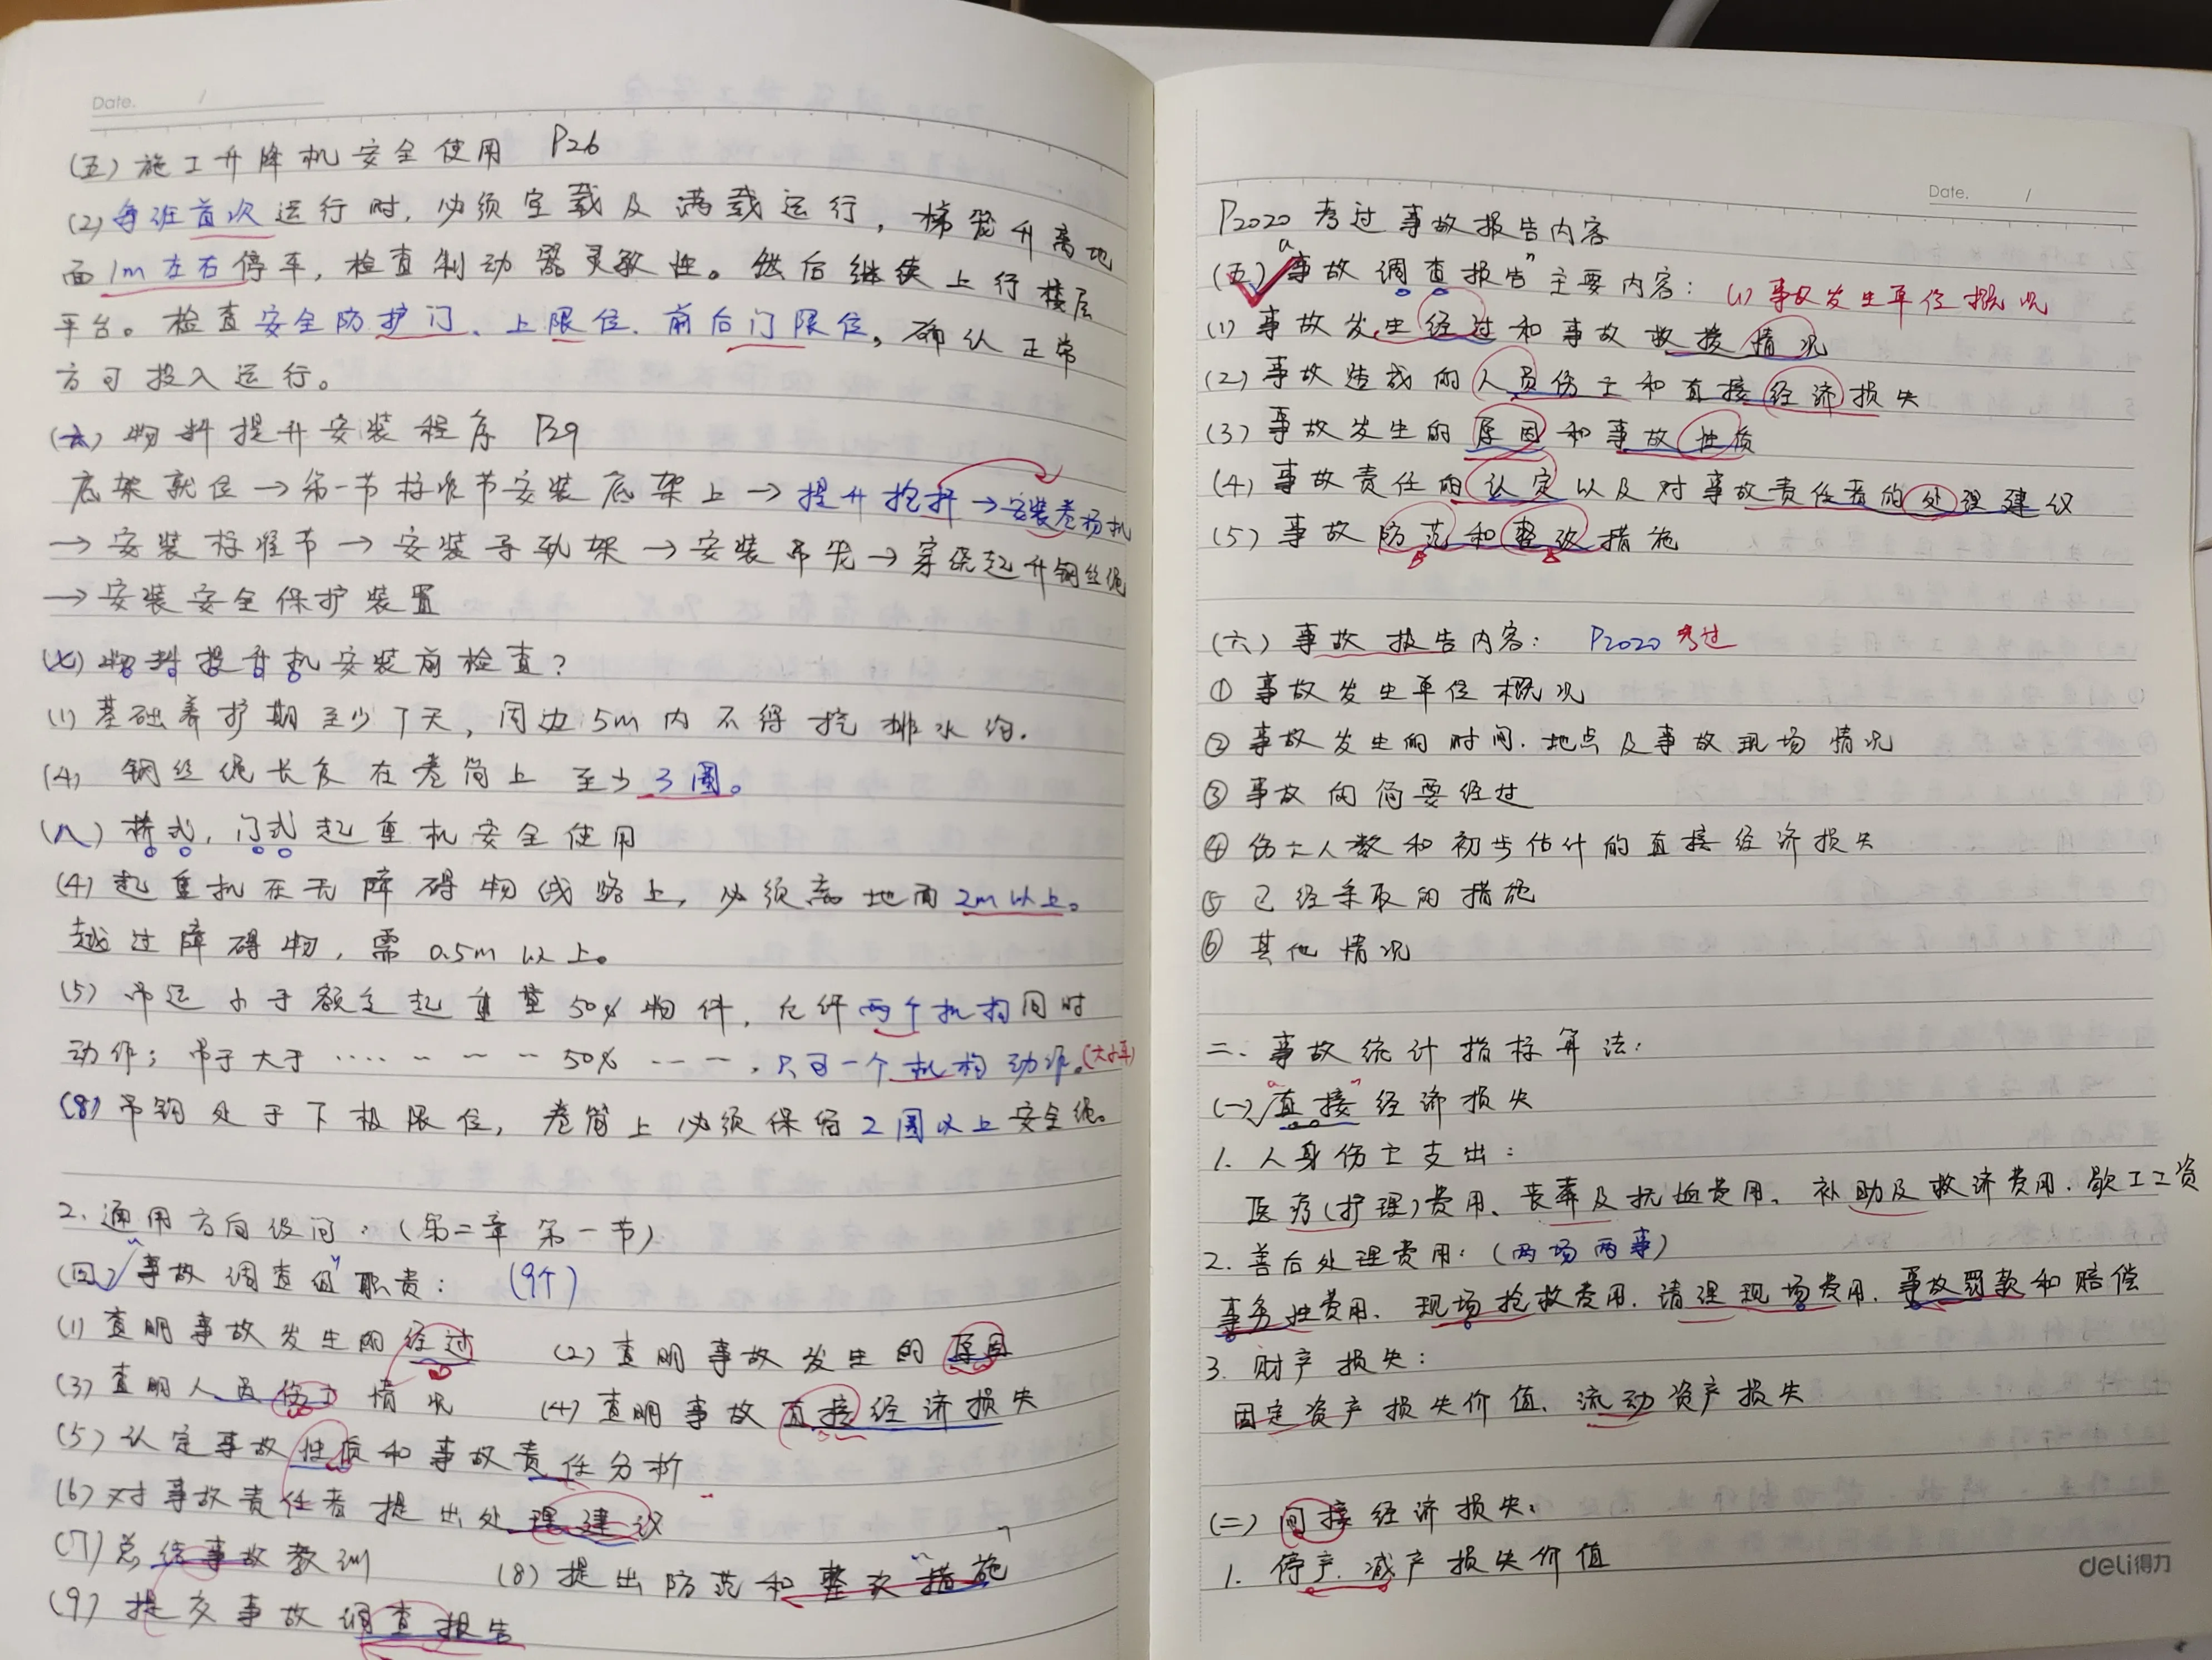 Date. /
(五) 施工升降机安全使用 P26
(2) 每班首次运行时，必须空载及满载运行，梯笼升离地
面1m左右停车，检查制动器灵敏性。然后继续上行楼层
平台。检查安全防护门、上限位、前后门限位，确认正常
方可投入运行。
(六) 物料提升安装程序 P29
底架就位→第一节标准节安装底架上→提升抱杆→安装卷扬机
→安装标准节→安装导轨架→安装吊笼→穿绕起升钢丝绳
→安装安全保护装置
(七) 物料提升机安装前检查?
(1) 基础养护期至少7天，周边5m内不得挖排水沟.
(4) 钢丝绳长度在卷筒上至少3圈。
(八) 桥式，门式起重机安全使用
(4) 起重机在无障碍物线路上，必须离地面2m以上。
越过障碍物，需0.5m以上。
(5) 吊运小于额定起重量50%物件，允许两个机构同时
动作；吊于大于 ······ 50% ---，只可一个机构动作。(大小车)
(8) 吊钩处于下极限位，卷筒上必须保留2圈以上安全绳。
2. 通用方向设问：(第二章 第一节)
(四)√"事故调查组"职责： (9个)
(1) 查明事故发生的经过 (2) 查明事故发生的原因
(3) 查明人员伤亡情况 (4) 查明事故直接经济损失
(5) 认定事故性质和事故责任分析
(6) 对事故责任者提出处理建议
(7) 总结事故教训 (8) 提出防范和整改"措施"
(9) 提交事故调查报告
Date. /
P2020 考过事故报告内容
(五)√"事故调查报告"主要内容： (1) 事故发生单位概况
(1) 事故发生经过和事故救援情况
(2) 事故造成的人员伤亡和直接经济损失
(3) 事故发生的原因和事故性质
(4) 事故责任的认定以及对事故责任者的处理建议
(5) 事故防范和整改措施
(六) 事故报告内容： P2020 考过
① 事故发生单位概况
② 事故发生的时间.地点及事故现场情况
③ 事故的简要经过
④ 伤亡人数和初步估计的直接经济损失
⑤ 已经采取的措施
⑥ 其他情况
二. 事故统计指标算法：
(一)√"直接"经济损失
1. 人身伤亡支出：
医疗(护理)费用、丧葬及抚恤费用、补助及救济费用.歇工工资
2. 善后处理费用：(两场两事)
事务性费用、现场抢救费用.清理现场费用.事故罚款和赔偿
3. 财产损失：
固定资产损失价值、流动资产损失
(二) 间接经济损失：
1. 停产.减产损失价值
deli得力